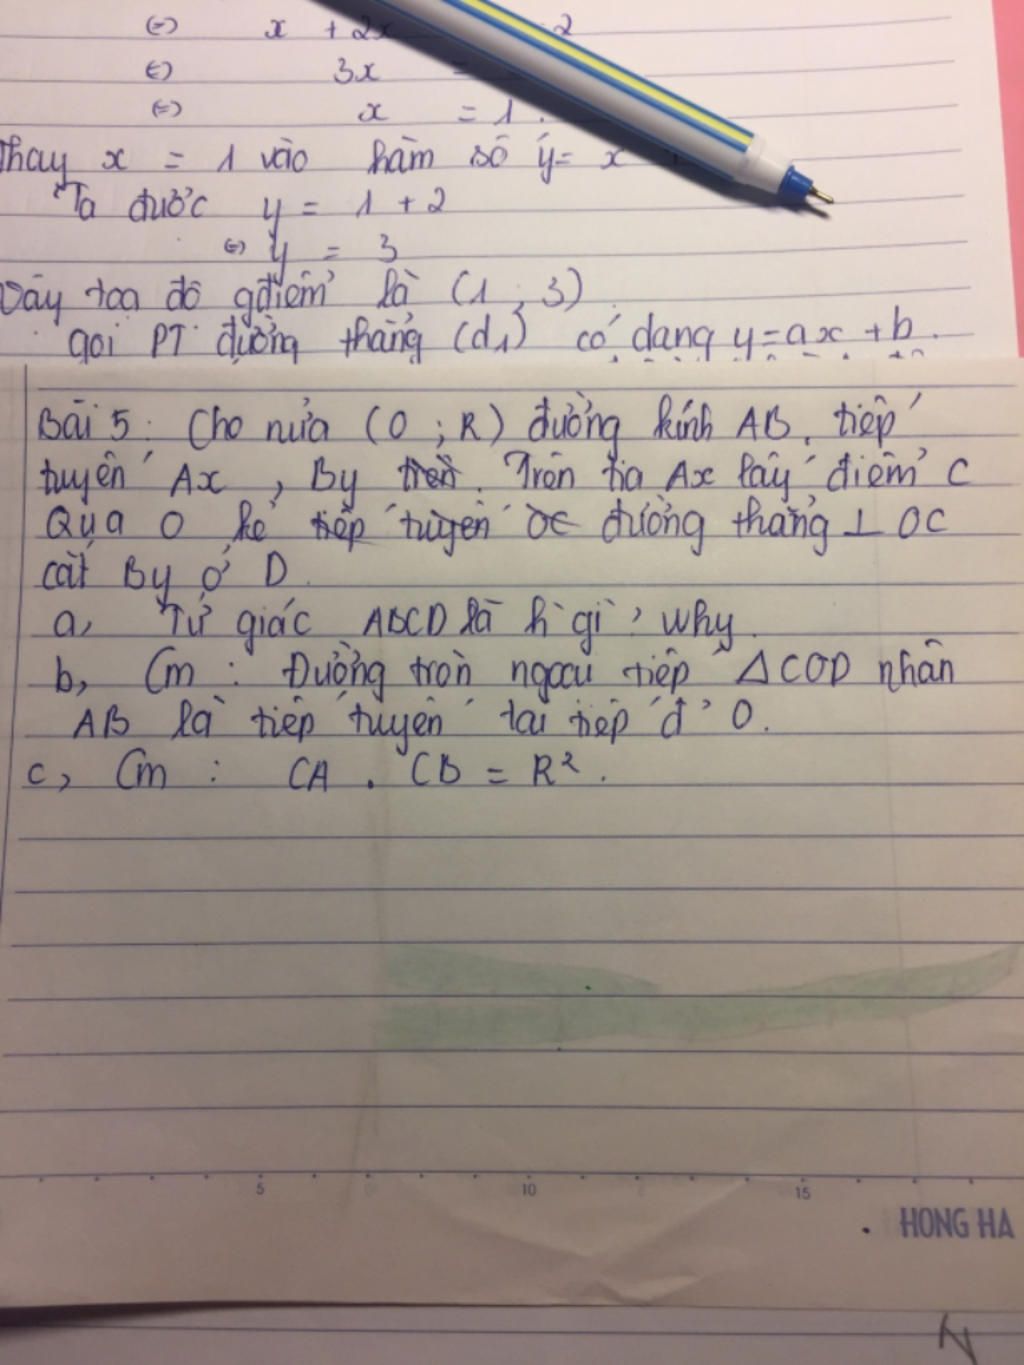 (=) x + 2x 2
(=) 3x =
(=) x = 1.
Thay x = 1 vào hàm số y = x
Ta được y = 1 + 2
(=) y = 3
Vậy tọa độ gđiểm là (1 ; 3)
gọi PT đường thẳng (d1) có dạng y = ax + b.
Bài 5 : Cho nửa (O ; R) đường kính AB, tiếp
tuyến Ax , By trên. Trên tia Ax lấy điểm C
Qua O kẻ tiếp tuyến OC đường thẳng ⊥ OC
cắt By ở D.
a, Tứ giác ABCD là h gì ? Why.
b, Cm : Đường tròn ngoại tiếp ΔCOD nhận
AB là tiếp tuyến tại tiếp đ' O.
c, Cm : CA . CB = R².
5 10 15
HONG HA